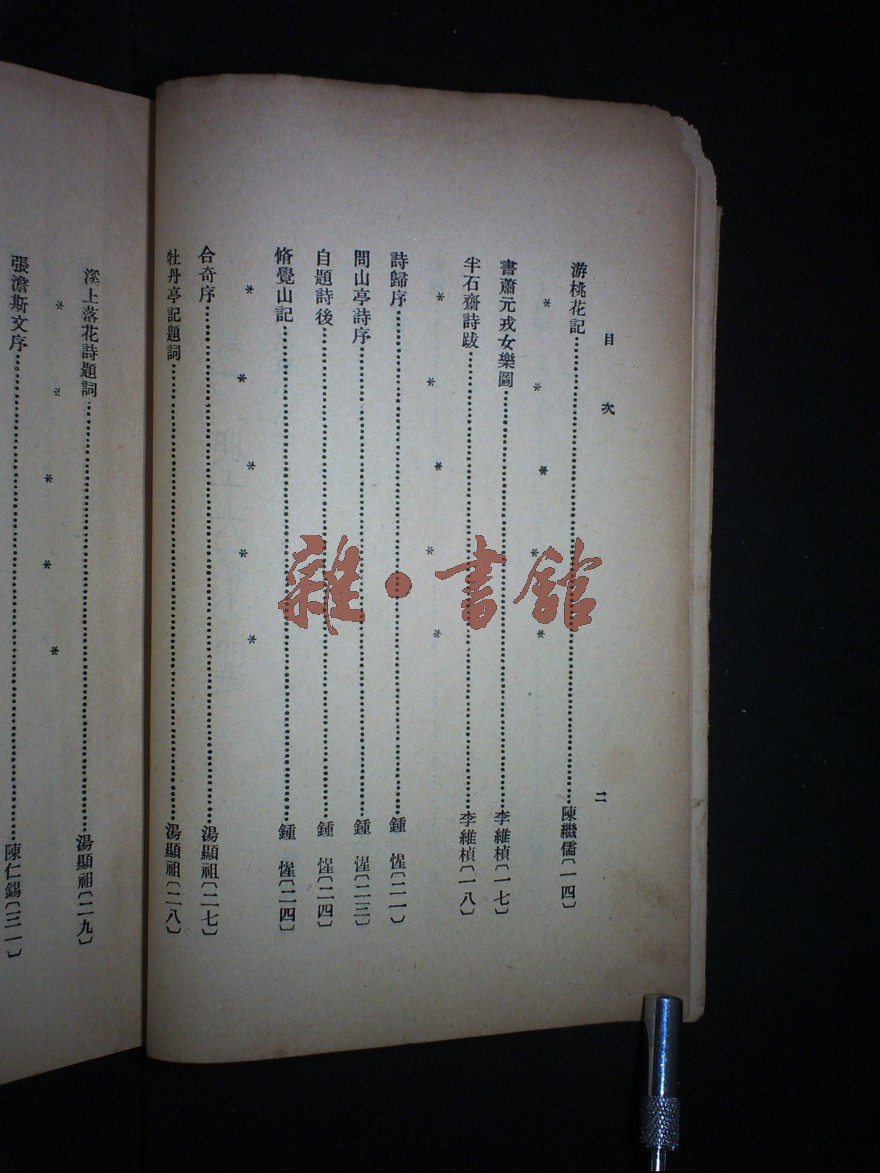 目次
二
游桃花記……陳繼儒〔一四〕
* * * * *
書蕭元戎女樂圖……李維楨〔一七〕
半石齋詩跋……李維楨〔一八〕
* * * * *
詩歸序……鍾惺〔二一〕
問山亭詩序……鍾惺〔二三〕
自題詩後……鍾惺〔二四〕
脩覺山記……鍾惺〔二四〕
* * * * *
合奇序……湯顯祖〔二七〕
牡丹亭記題詞……湯顯祖〔二八〕
溪上落花詩題詞……湯顯祖〔二九〕
* * * * *
張澹斯文序……陳仁錫〔三一〕
雜·書館